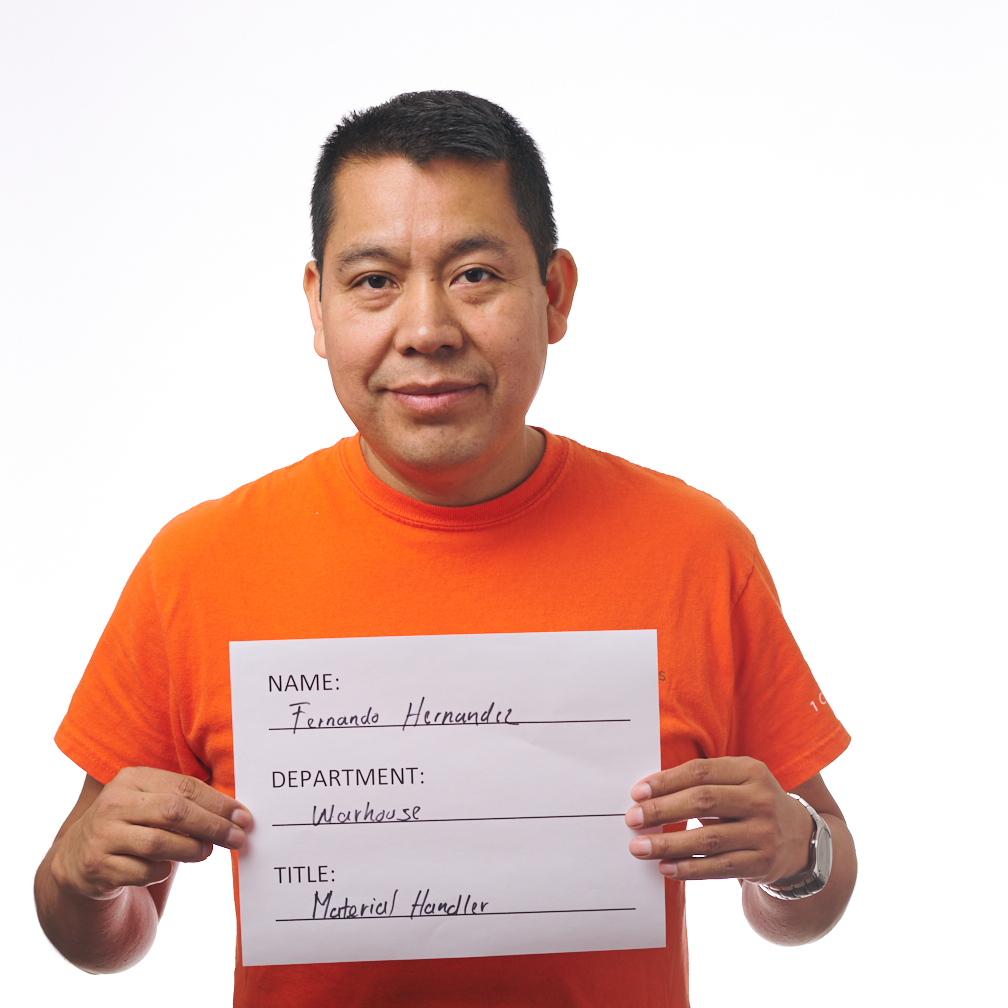 NAME:
Fernando Hernandez
DEPARTMENT:
Warhouse
TITLE:
Material Handler